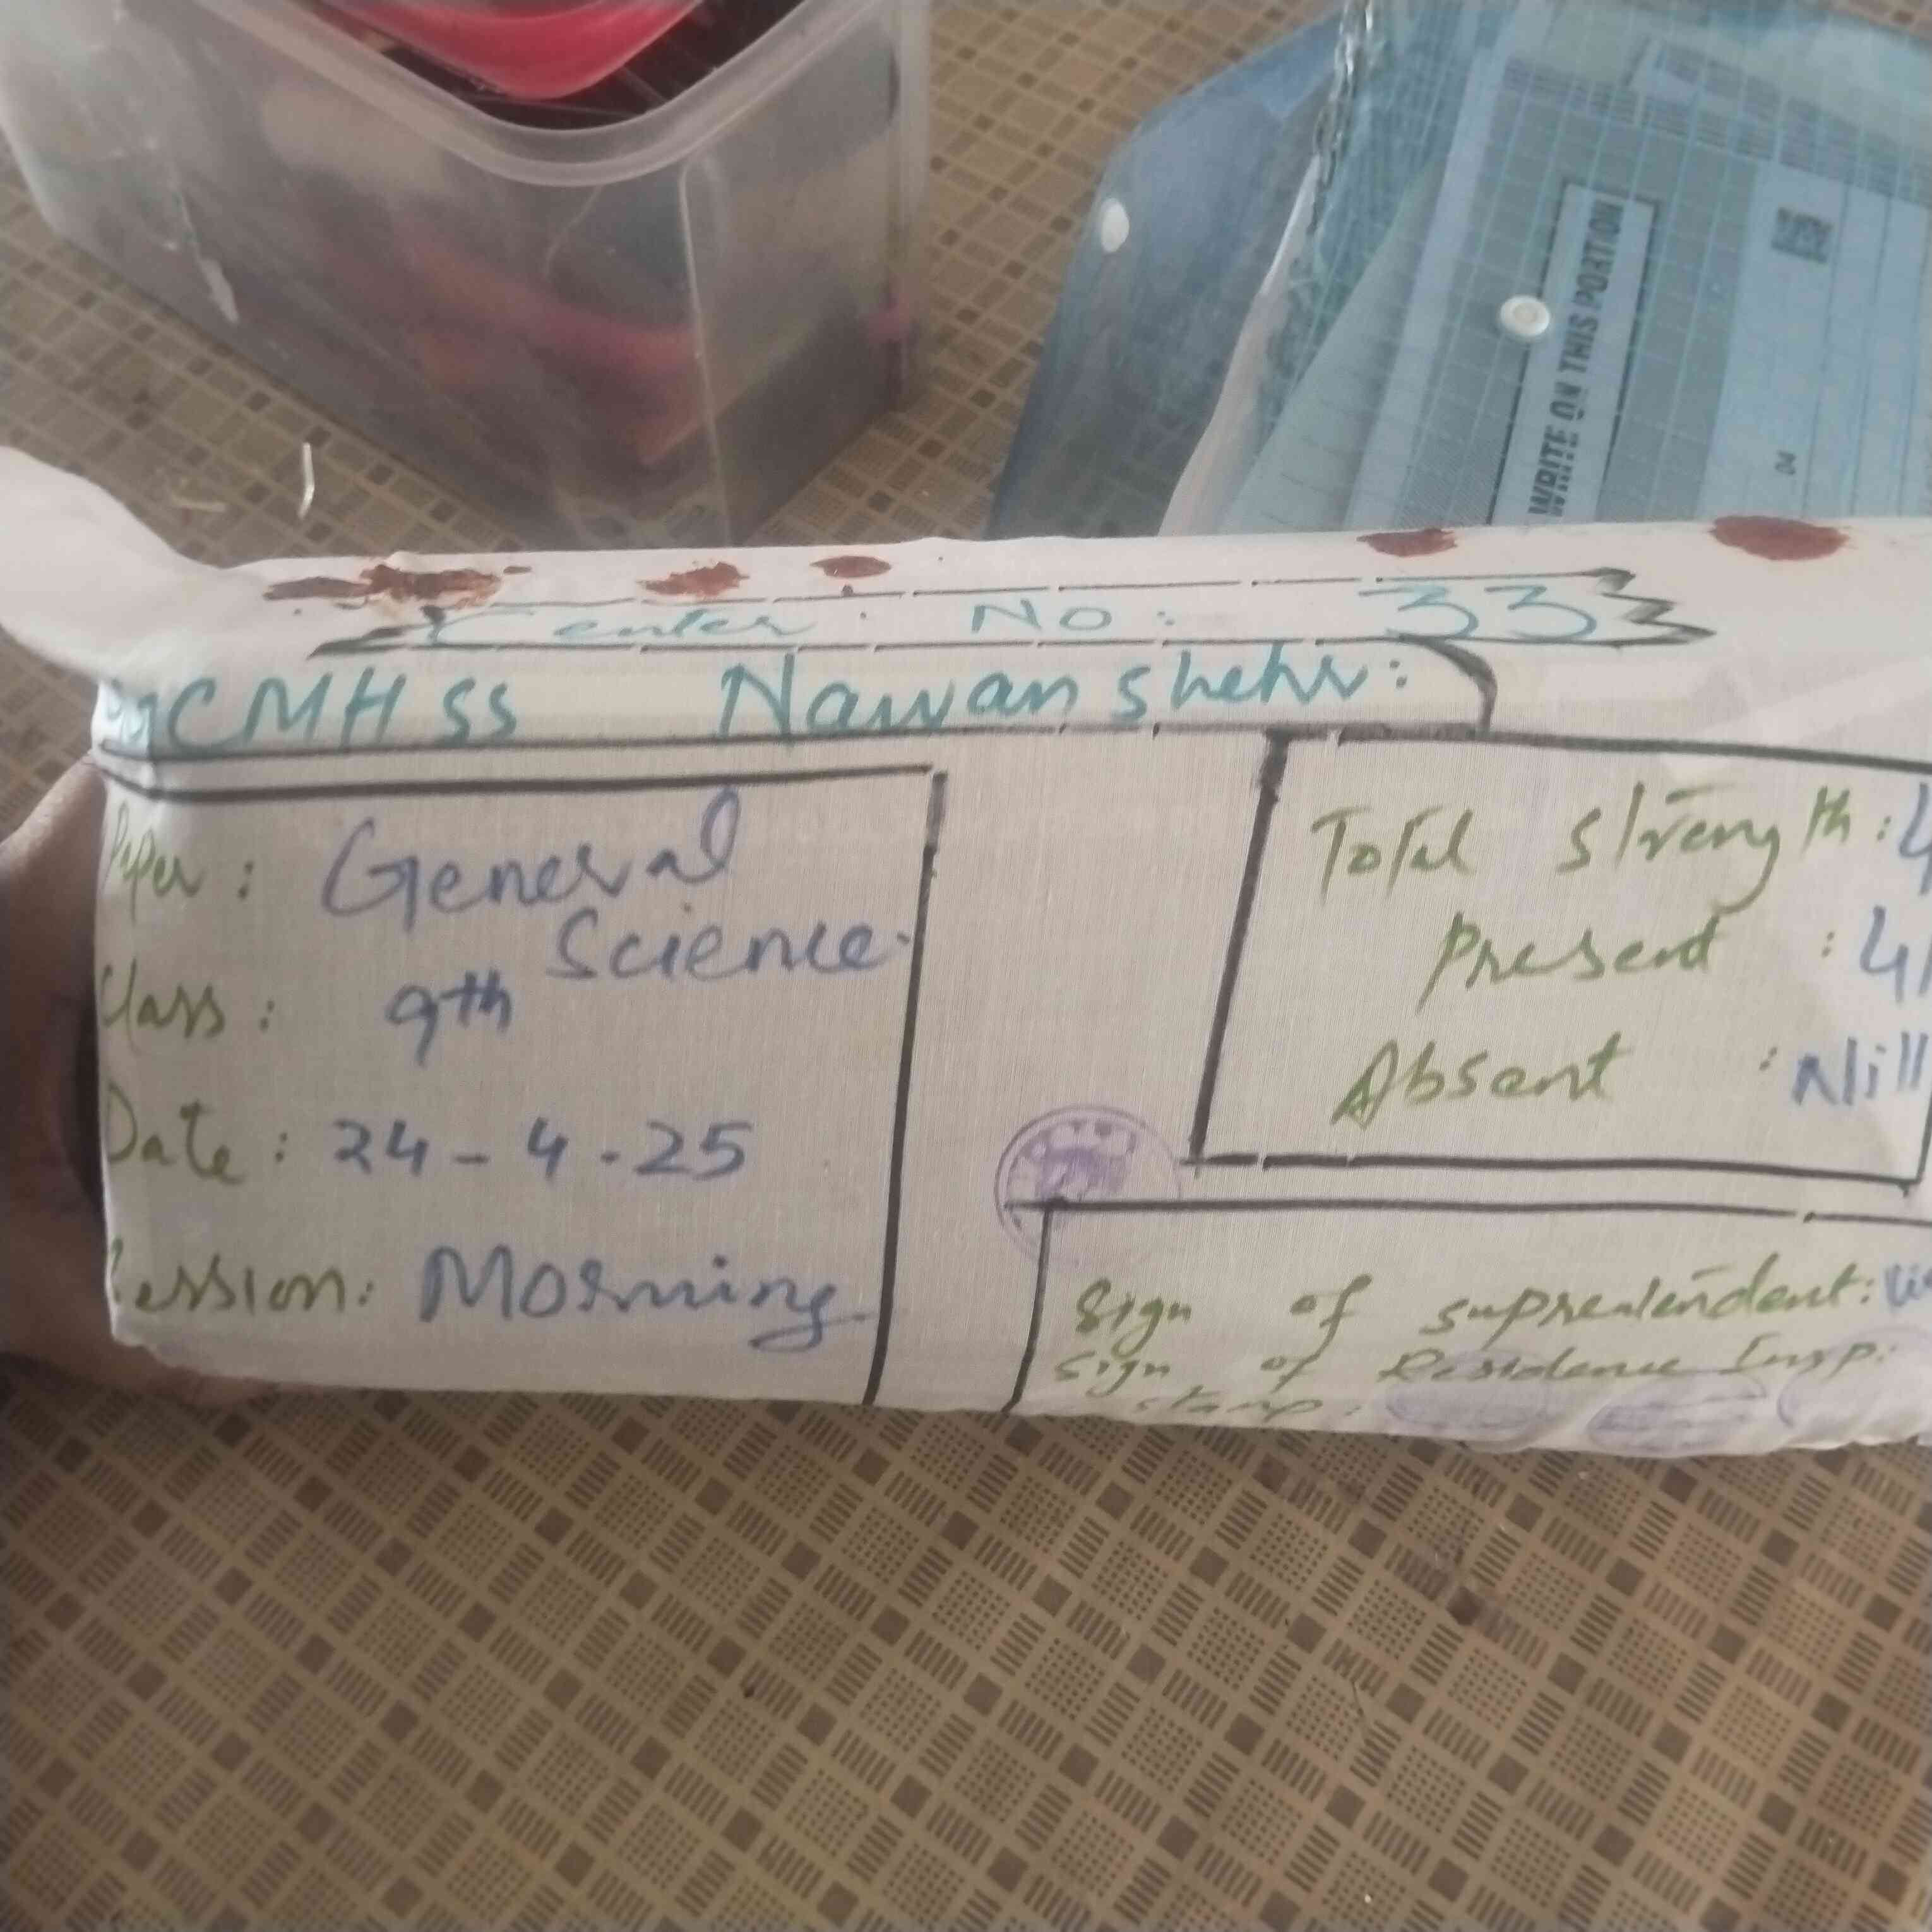 WRITE ON THIS PORTION
04
Center No: 33
GCMHSS Nawanshehr:
Paper: General
Science.
Class: 9th
Date: 24-4-25
Session: Morning
Total Strength:
Present :
Absent : Nill
Sign of suprentendent:
Sign of Residence Insp:
stamp: